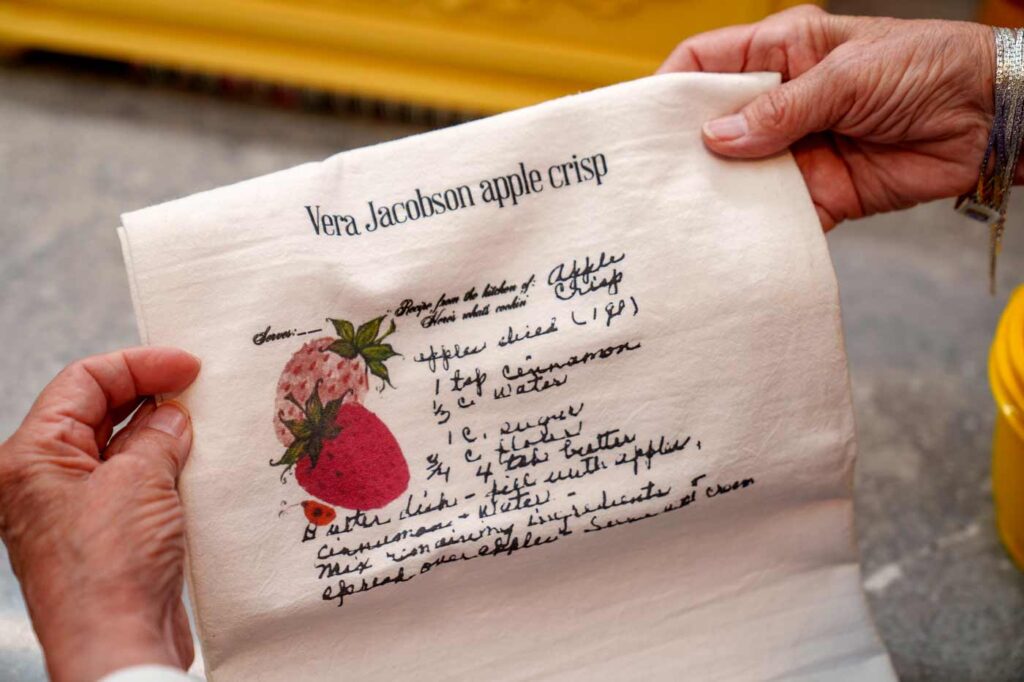 Vera Jacobson apple crisp
Serves:__
Recipe from the kitchen of: Apple Crisp
Here's whats cookin'
apples sliced (1 qt)
1 tsp cinnamon
⅓ c. water
1 c. sugar
¾ c. flour
4 tbs butter
Butter dish - fill with apples,
cinnamon + water -
Mix remaining ingredients +
spread over apples - Serve w